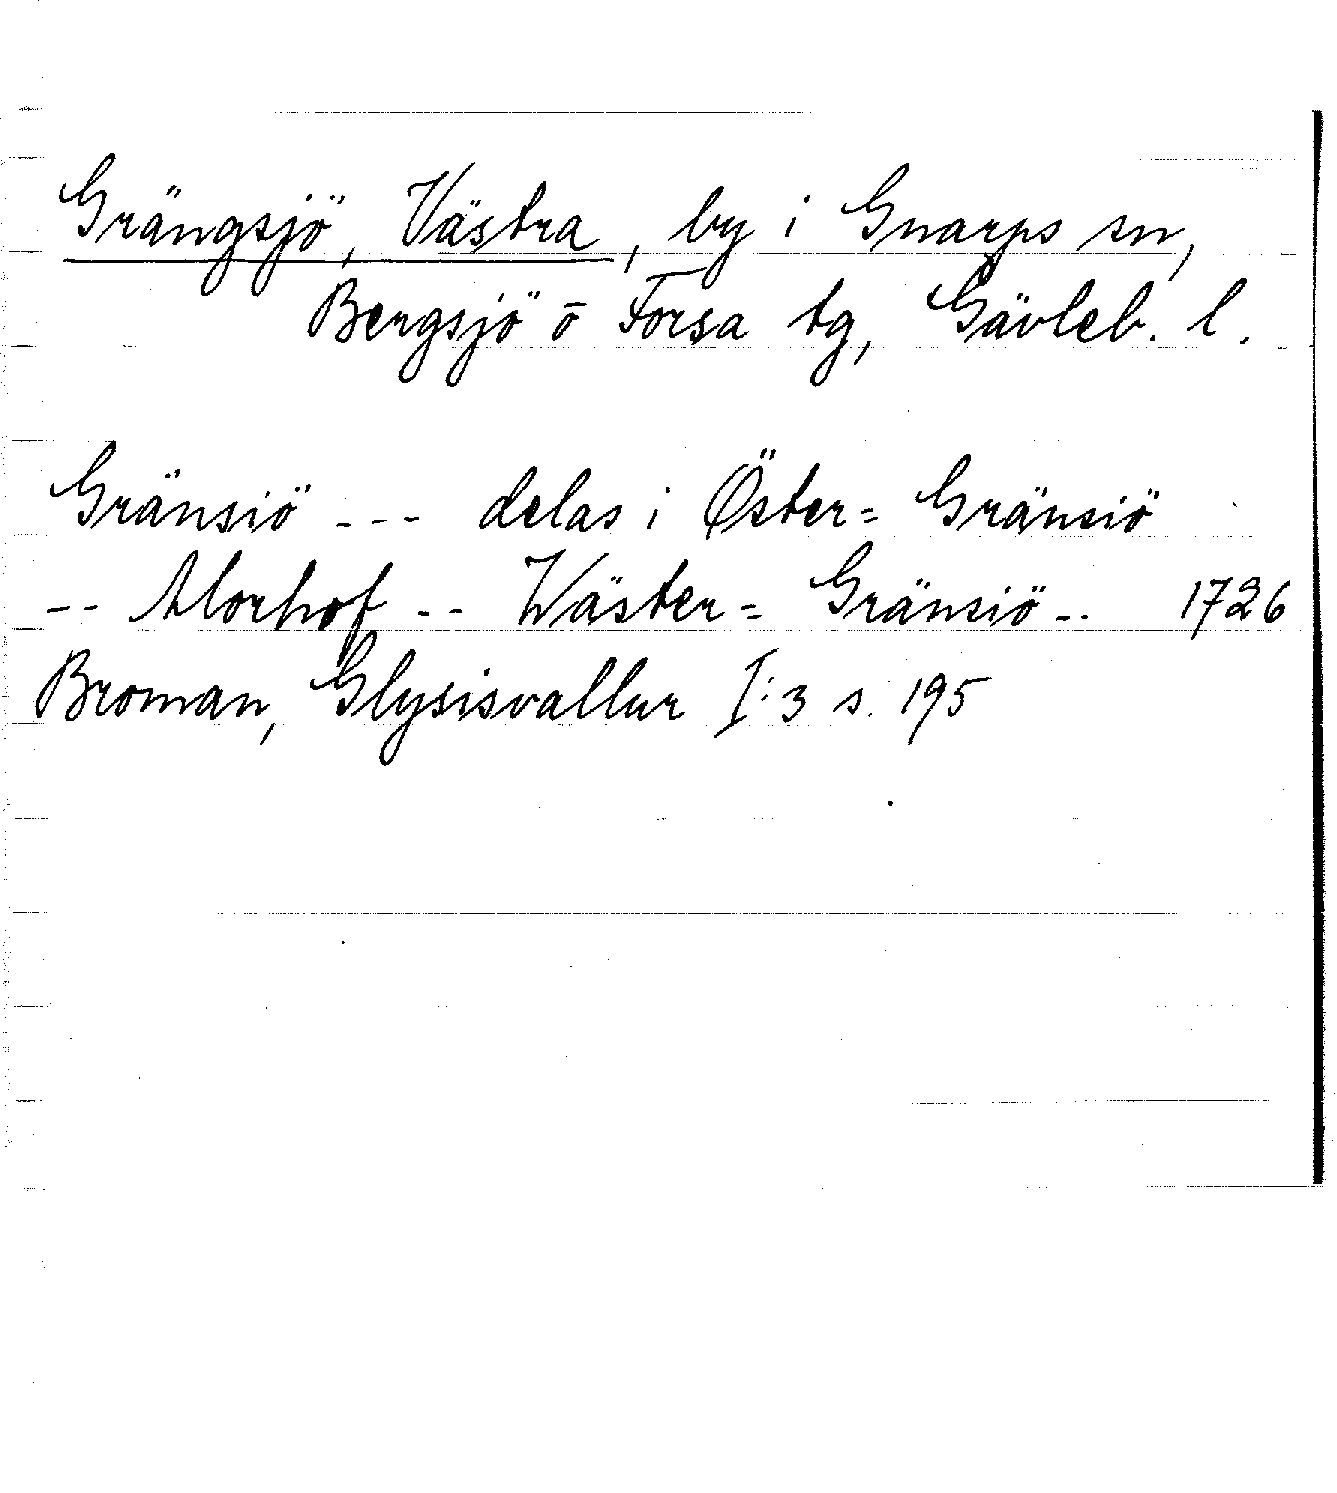 Grängsjö, Västra, by i Gnarps sn,
Bergsjö o Forsa tg, Gävleb. l.
Gränsiö --- delas i Öster= Gränsiö
-- Alorhof -- Wäster= Gränsiö -- 1726
Broman, Glysisvallur I:3 s. 195